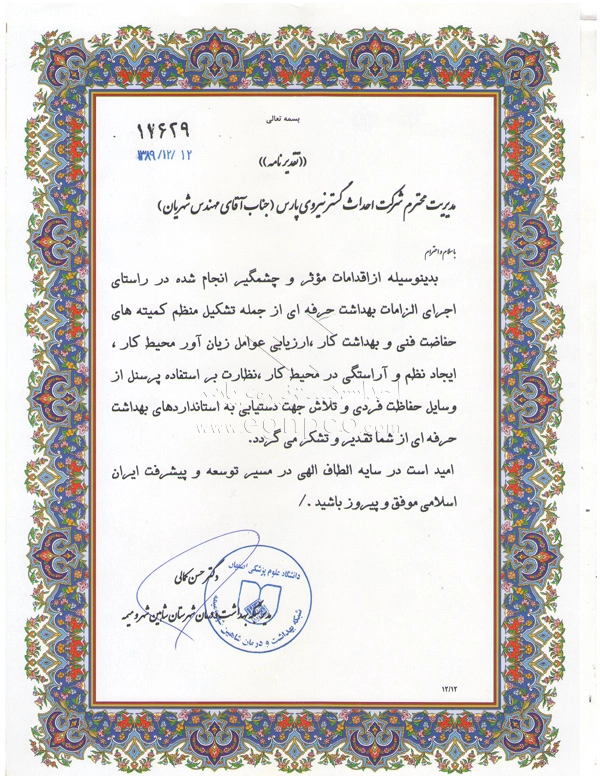 بسمه تعالی
۱۷۶۲۹
۱۳۸۹/۱۲/۱۲
((تقدیرنامه))
مدیریت محترم شرکت احداث گستر نیروی پارس (جناب آقای مهندس شهریان)
باسلام و احترام
بدینوسیله ازاقدامات مؤثر و چشمگیر انجام شده در راستای
اجرای الزامات بهداشت حرفه ای از جمله تشکیل منظم کمیته های
حفاضت فنی و بهداشت کار ،ارزیابی عوامل زیان آور محیط کار ،
ایجاد نظم و آراستگی در محیط کار ،نظارت بر استفاده پرسنل از
وسایل حفاظت فردی و تلاش جهت دستیابی به استانداردهای بهداشت
www.eonpco.com
حرفه ای از شما تقدیر و تشکر می گردد.
امید است در سایه الطاف الهی در مسیر توسعه و پیشرفت ایران
اسلامی موفق و پیروز باشید ./
دانشگاه علوم پزشکی اصفهان
دکتر حسن کمالی
مدیر شبکه بهداشت و درمان شهرستان شاهین شهر و میمه
شبکه بهداشت و درمان شاهین شهر
۱۲/۱۲